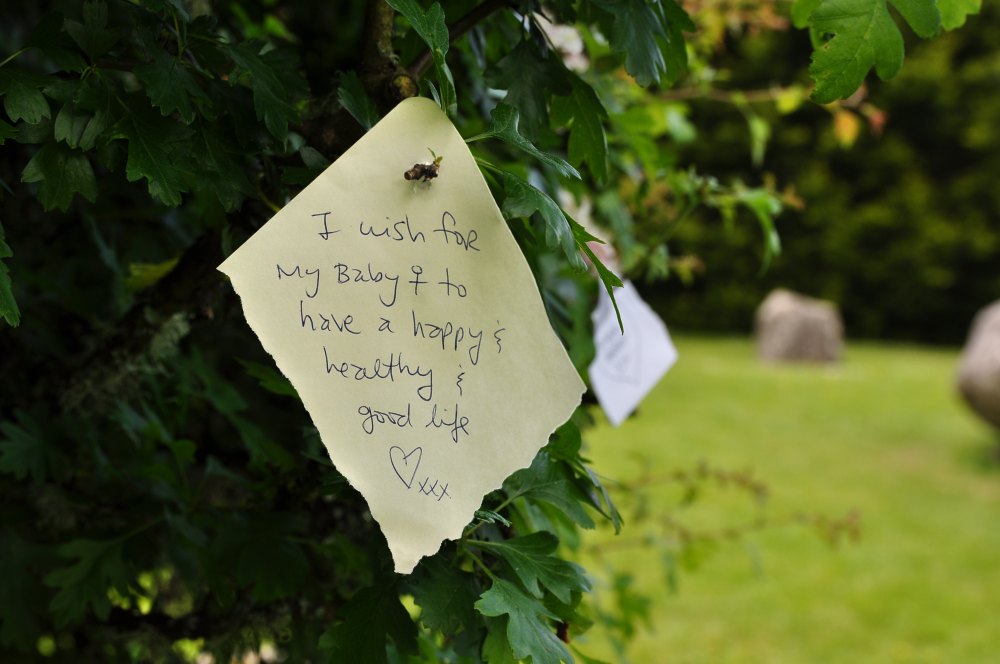 I wish for
My Baby ♀ to
have a happy &
healthy &
good life
♡xxx